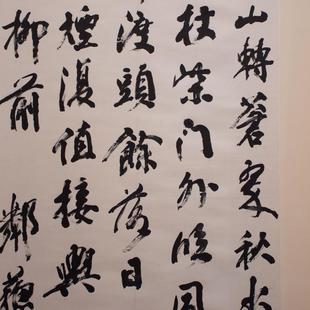 山轉蒼翠秋水
杖柴門外臨風
渡頭餘落日
煙復值接輿
柳前 鄰蘇